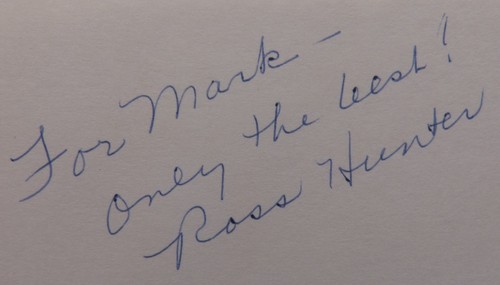 For Mark -
only the best!
Ross Hunter